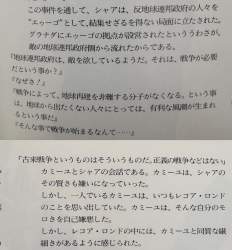 この事件を通して、シャアは、反地球連邦政府の人々を
"エゥーゴ"として、結集せざるを得ない局面に立たされた。
グラナダにエゥーゴの拠点が設営されたといううわさが、
敵の地球連邦政府側から流れたからである。
『地球連邦政府は、敵を欲しているようだ。それは、戦争が必要
だという事か?』
『なぜ?』
『戦争によって、地球再建を非難する分子がなくなる。という事
は、地球から出たくない人々にとっては、有利な風潮が生まれ
るという事だ』
『そんな事で戦争が始まるなんて……』
『古来戦争というものはそういうものだ。正義の戦争などはない』
カミーユとシャアの会話である。カミーユは、シャアのそ
の賢さも嫌いになっていった。
しかし、一人でいるカミーユは、いつもレコア・ロンドの
ことを思い出していた。カミーユは、そんな自分のモ
ロさを自己嫌悪した。
しかし、レコア・ロンドの中には、カミーユと同質な繊
細さがあるように感じられた。